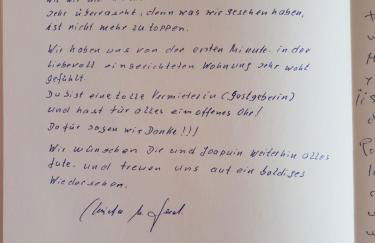 sehr überrascht, denn was wir gesehen haben,
ist nicht mehr zu toppen.
Wir haben uns von der ersten Minute in der
liebevoll eingerichteten Wohnung sehr wohl
gefühlt.
Du bist eine tolle Vermieterin (Gastgeberin)
und hast für alles ein offenes Ohr!
Dafür sagen wir Danke!!!
Wir wünschen Dir und Joaquin weiterhin alles
Gute und freuen uns auf ein baldiges
Wiedersehen.